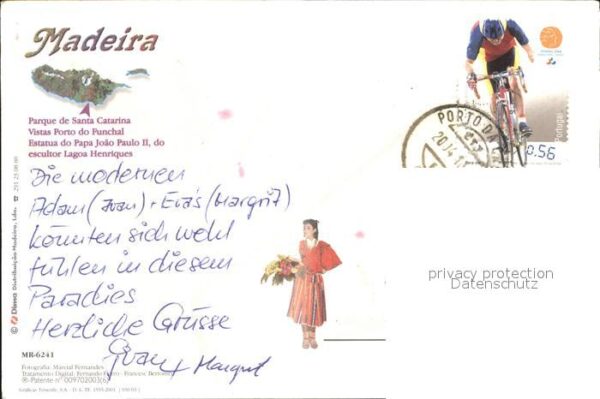 Madeira
Parque de Santa Catarina
Vistas Porto do Funchal
Estatua do Papa João Paulo II, do
escultor Lagoa Henriques
Die modernen
Adam (Ivan) + Eva's (Margrit)
könnten sich wohl
fühlen in diesem
Paradies
Herzliche Grüsse
Ivan + Margrit
MR-6241
Fotografia: Marcial Fernandes
Tratamento Digital: Fernando
®-Patente nº 009702003(6)
© Diama Distribuição Madeira, Lda.
PORTO DA
20.04
Portugal
0.56
privacy protection
Datenschutz